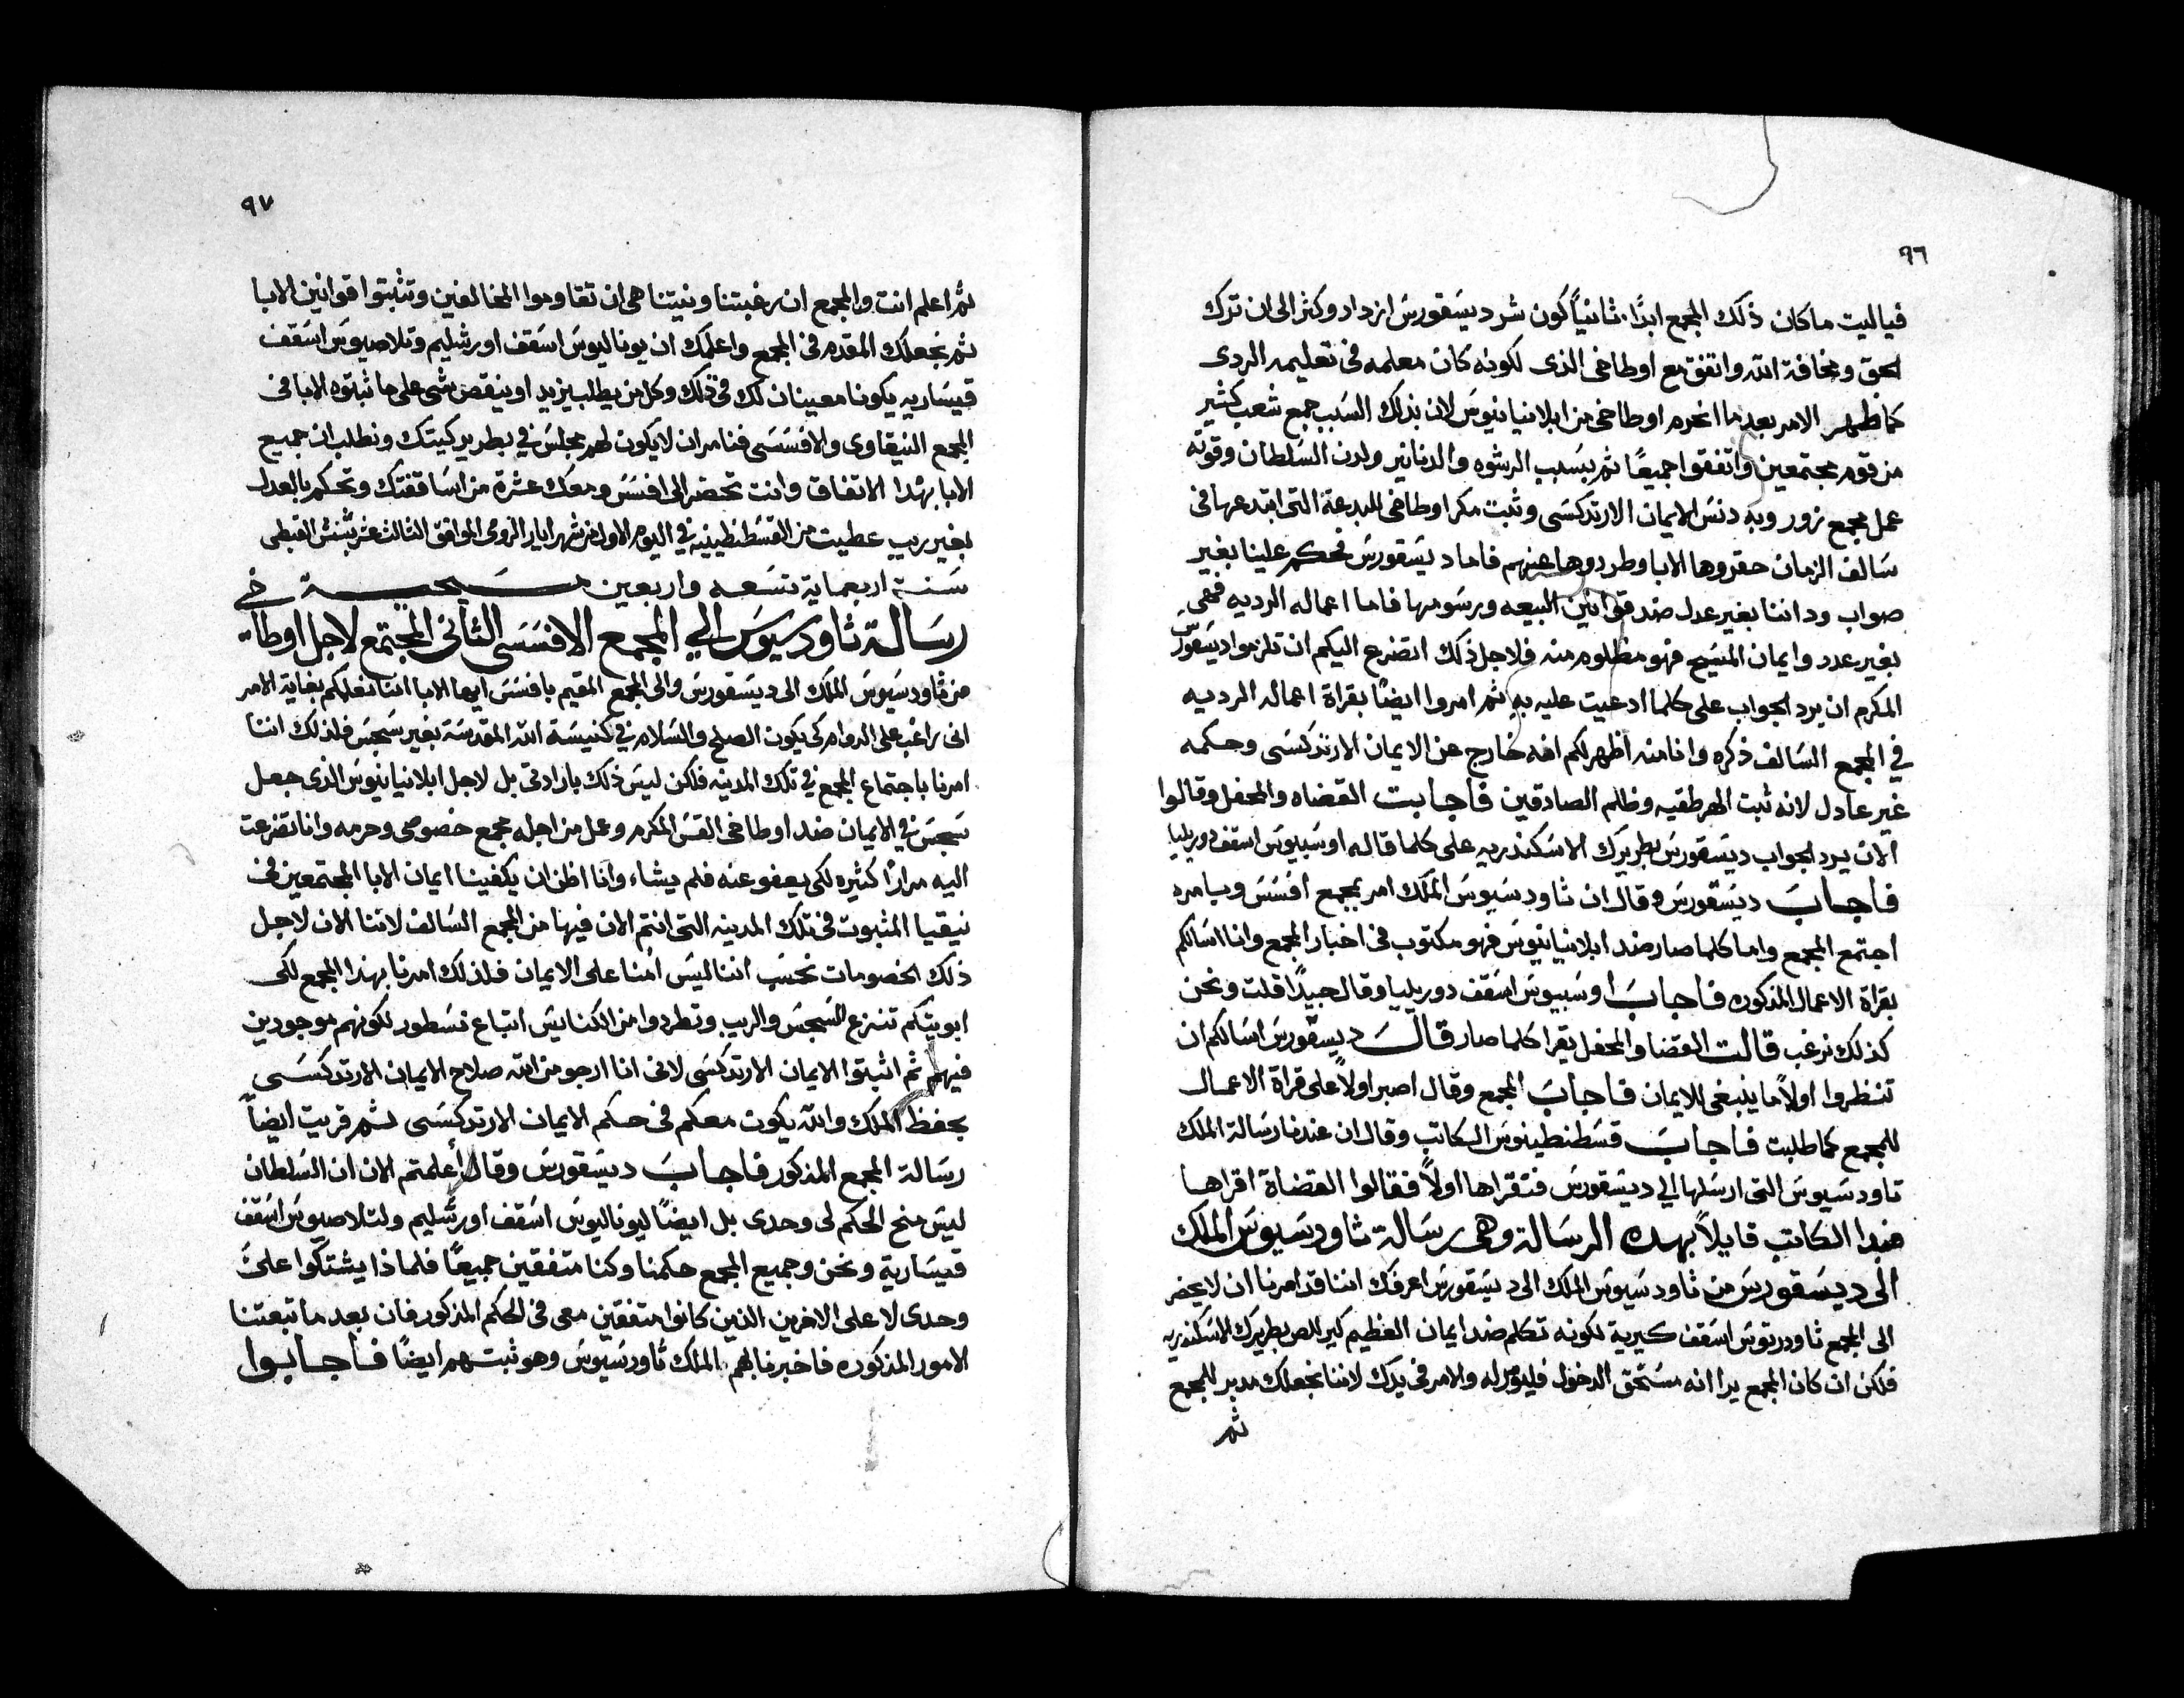 ٩٦
فياليت ماكان ذلك المجمع ابدًا. ثانيًا كون شر ديسَقورسَ ازداد وكثر الى ان ترك
الحق ومخافة الله واتفق مع اوطاخى الذى لكونه كان معلمه فى تعليمه الردى
كما ظهر الامر بعد ما انحرم اوطاخى من ابلانيانيوسَ لان بذلك السَبب جمع شعب كثير
من قوم مجتمعين واتفقوا جميعًا ثم بسَبب الرشوه والدنانير ولدن السَلطان وقوته
عمل مجمع زور وبه دنسَ الايمان الارتدكسَى وثبت مكر اوطاخى للبدعة التى ابتدعها فى
سَالف الزمان حقروها الابا وطردوها عنهم فاما ديسَقورسَ فحكم علينا بغير
صواب وداننا بغير عدل ضد قوانين البيعه ورسَومها فاما اعماله الرديه فهى
بغير عدد وايمان المسَيح فهو مظلوم منه فلاجل ذلك اتضرع اليكم ان تلزموا ديسَقورسَ
المكرم ان يرد الجواب على كلما ادعيت عليه به ثم امروا ايضًا بقراة اعماله الرديه
في المجمع السَالف ذكره وانا منه اظهر لكم انه خارج عن الايمان الارتدكسَى وحكمه
غير عادل لانه ثبت الهرطقيه وظلم الصادقين فاجابت القضاه والمحفل وقالوا
الان يرد الجواب ديسَقورسَ بطريرك الاسَكندريه على كلما قاله اوسَبيوسَ اسقف دوريليا
فاجابَ ديسَقورسَ وقال ان ثاودسَيوسَ الملك امر بمجمع افسَسَ وبامره
اجتمع المجمع واما كلما صار ضد ابلانيانيوسَ فهو مكتوب فى اخبار المجمع وانا اسَالكم
بقراة الاعمال المذكوره فاجابَ اوسَبيوسَ اسَقف دوريليا وقال جيدًا قلت ونحن
كذلك نرغب قالت القضا والمحفل يقرا كلما صار قالَ ديسَقورسَ اسَالكم ان
تنظروا اولاً ما ينبغى للايمان فاجابَ المجمع وقال اصبر اولاً على قراة الاعمال
للمجمع كما طلبت فاجابَ قسَطنطينوسَ الكاتب وقال ان عندنا رسَالة الملك
تاودسَيوسَ التى ارسَلها الي ديسَقورسَ فتقراها اولاً فقالوا القضاة اقراها
فبدا الكاتب قايلاً بهده الرسَالة وهى رسَالة ثاودسَيوسَ الملك
الى ديسَقورسَ من ثاودسَيوسَ الملك الى ديسَقورسَ اعرفك اننا قد امرنا ان لا يحضر
الى المجمع ثاودريتوسَ اسَقف كيرية لكونه تكلم ضد ايمان العظيم كيرللص بطريرك الاسَكندريه
فلكن ان كان المجمع يرا انه مسَتحق الدخول فليومر له والامر فى يدك لاننا نجعلك مدبر للمجمع
ثم
٩٧
ثم اعلم انت والمجمع ان رغبتنا ونيتنا هى ان تقاوموا المخالفين وتثبتوا قوانين الابا
ثم نجعلك المقدم فى المجمع واعلمك ان يوناليوسَ اسَقف اورشليم وتلاصيوسَ اسَقف
قيسَاريه يكونا معينان لك فى ذلك وكل من يطلب يزيد او ينقص شى على ما ثبتوه الابا فى
المجمع النيقاوى والافسَسَى فنامر ان لا يكون لهم مجلسَ في بطريركيتك ونطلب ان جميع
الابا بهدا الاتفاق وانت تحضر الى افسَسَ ومعك عشرة من اسَاقفتك وتحكم بالعدل
بغير ريب عطيت من القسَطنطينيه في اليوم الاول من شهر ايار الرومى الموافق الثالث عشر بشنش القبطى
سَنة اربعماية تسَعه واربعين مسَيحية
رسَالة ثاودسيوسَ الي المجمع الافسَسَى الثانى المجتمع لاجل اوطاخي
من ثاودسَيوسَ الملك الى ديسَقورسَ والى المجمع المقيم بافسَسَ ايها الابا اننا نعلمكم بغاية الامر
انى راغب على الدوام كى يكون الصلح والسَلام في كنيسَة الله المقدسَة بغير سَجسَ فلذلك اننا
امرنا باجتماع المجمع في تلك المدينه فلكن ليسَ ذلك بارادتى بل لاجل ابلانيانيوسَ الذى جعل
سَجسَ في الايمان ضد اوطاخى القسَ المكرم وعمل من اجله مجمع خصوصى وحرمه وانا تضرعت
اليه مرارًا كثيره لكى يعفو عنه فلم يشاء وانا اظن ان يكفينا ايمان الابا المجتمعين فى
نيقيا المثبوت فى تلك المدينه التى انتم الان فيها من المجمع السَالف لاننا الان لاجل
ذلك الخصومات نحسَب اننا ليسَ اُمنا على الايمان فلذلك امرنا بهذا المجمع لكى
ابويتكم تنزع السَجسَ والريب وتطردوا من الكنايسَ اتباع نسَطور لكونهم موجودين
فيهم ثم اثبتوا الايمان الارتدكسَى لانى انا ارجو من الله صلاح الايمان الارتدكسَى
بحفظ الملك والله يكون معكم فى حكم الايمان الارتدكسَى ثم قريت ايضاً
رسَالة المجمع المذكور فاجابَ ديسَقورسَ وقال أعلمتم الان ان السَلطان
ليسَ منح الحكم لى وحدى بل ايضًا ليوناليوسَ اسَقف اورشليم ولتلاصيوسَ اسَقف
قيسَارية ونحن وجميع المجمع حكمنا وكنا متفقين جميعًا فلماذا يشتكوا علىّ
وحدى لا على الاخرين الذين كانوا متفقين معى فى الحكم المذكور فان بعد ما تبعتنا
الامور المذكوره فاخبرنا بهم الملك ثاودسَيوسَ وهو ثبتهم ايضًا فاجابوا